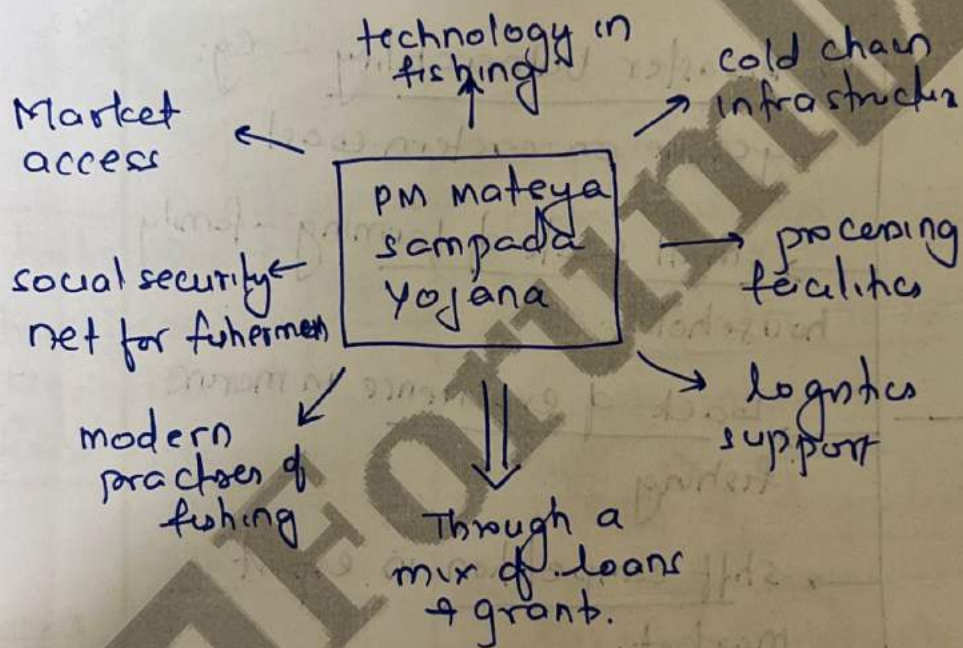 technology in
fishing
cold chain
infrastructure
Market
access
PM mateya
sampada
Yojana
processing
facilities
social security
net for fishermen
logistics
support
modern
practises of
fishing
Through a
mix of loans
+ grants.
Forum